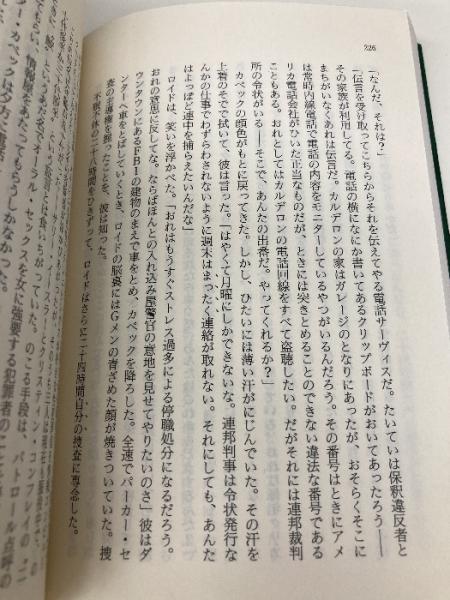 226
「なんだ、それは?」
「伝言を受け取ってこちらからそれを伝えてやる電話サーヴィスだ。たいていは保釈違反者と
その家族が利用してる。電話の横になにか書いてあるクリップボードがおいてあったろう――
まちがいなくあれは伝言だ。カルデロンの家はガレージのとなりにあったが、おそらくそこに
は常時内線電話で電話の内容をモニターしているやつがいるんだろう。その番号はときにアメ
リカ電話会社がひいた正当なものだが、ときには突きとめることのできない違法な番号である
こともある。おれとしてはカルデロンの電話回線をすべて盗聴したい。だがそれには連邦裁判
所の令状がいる――そこで、あんたの出番だ。やってくれるか?」
カペックの顔色がもとに戻ってきた。しかし、ひたいには薄い汗がにじんでいた。その汗を
上着のそでで拭いて、彼は言った。「はやくて月曜にしかできないな。連邦判事は令状発行な
んかの仕事でわずらわされないように週末はまったく連絡が取れない。それにしても、あんた
はよっぽど連中を捕らえたいんだな」
ロイドは、笑いを浮かべた。「おれはもうすぐストレス過多による停職処分になるだろう。
おれの意思に反してな。ならばほんとの入れ込み屋警官の意地を見せてやりたいのさ」彼はダ
ウンタウンにあるFBIの建物のまえで車をとめ、カペックを降ろした。全速でパーカー・セ
ンターへ車をとばしていくとき、ロイドの脳裏にはGメンの青ざめた顔が焼きついていた。捜
査の主導権を握ったことを、彼は知った。
不眠不休の二十八時間をひきずって、ロイドはさらに二十四時間自分の捜査に専念した。